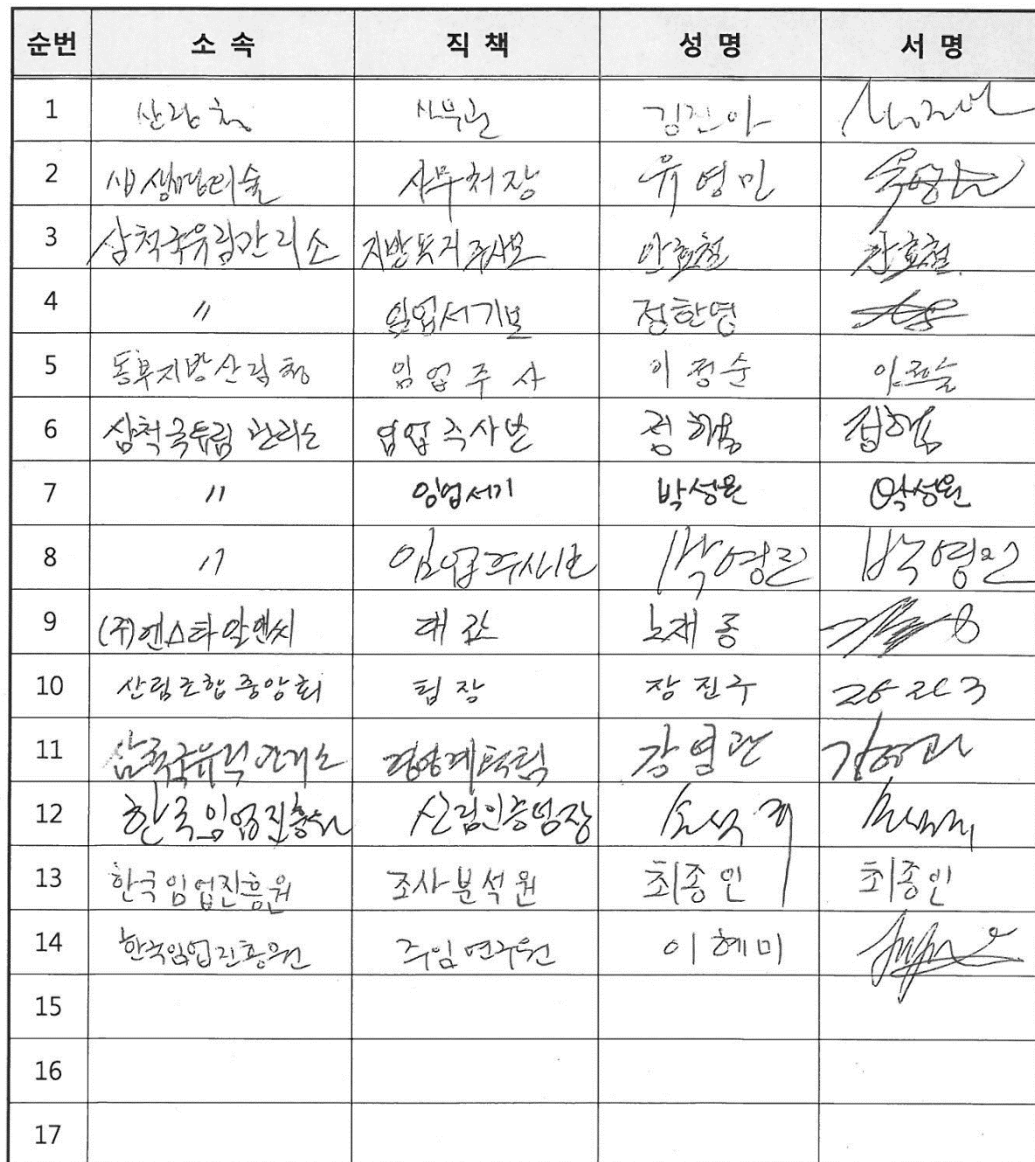 순번 소 속 직 책 성 명 서 명
1 산림청 사무관 김진아
2 생명의숲 사무처장 유영민
3 삼척국유림관리소 안효철 안효철
4 〃 임업서기보 정한영
5 동부지방산림청 임업주사 이정순
6 삼척국유림관리소 임업주사보 정해용 정해용
7 〃 임업서기 박성원 박성원
8 〃 임업주사보 박영진 박영진
9 (주)엔스타알앤씨 노재종
10 산림조합중앙회 팀장 장진구
11 삼척국유림관리소 경영계획팀 강영관
12 한국임업진흥원 산림인증팀장
13 한국임업진흥원 조사분석원 최종인 최종인
14 한국임업진흥원 주임연구원 이혜미
15
16
17